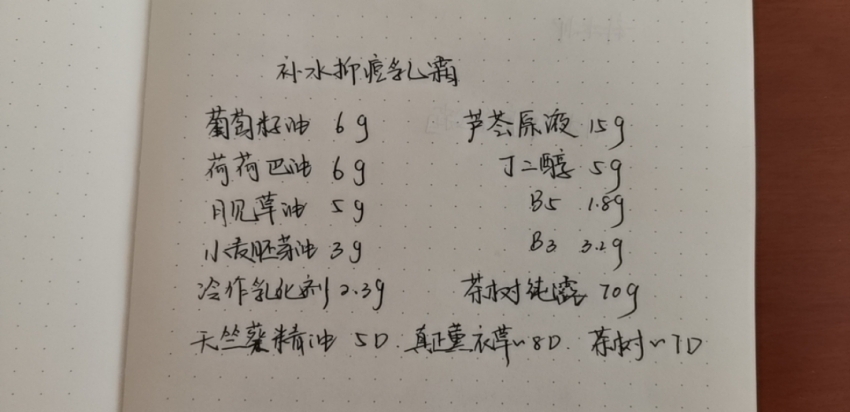 补水抑痘乳霜
葡萄籽油 6g 芦荟原液 15g
荷荷巴油 6g 丁二醇 5g
月见草油 5g B5 1.8g
小麦胚芽油 3g B3 3.2g
冷作乳化剂 2.3g 茶树纯露 70g
天竺葵精油 5D. 真正薰衣草〃8D. 茶树〃7D